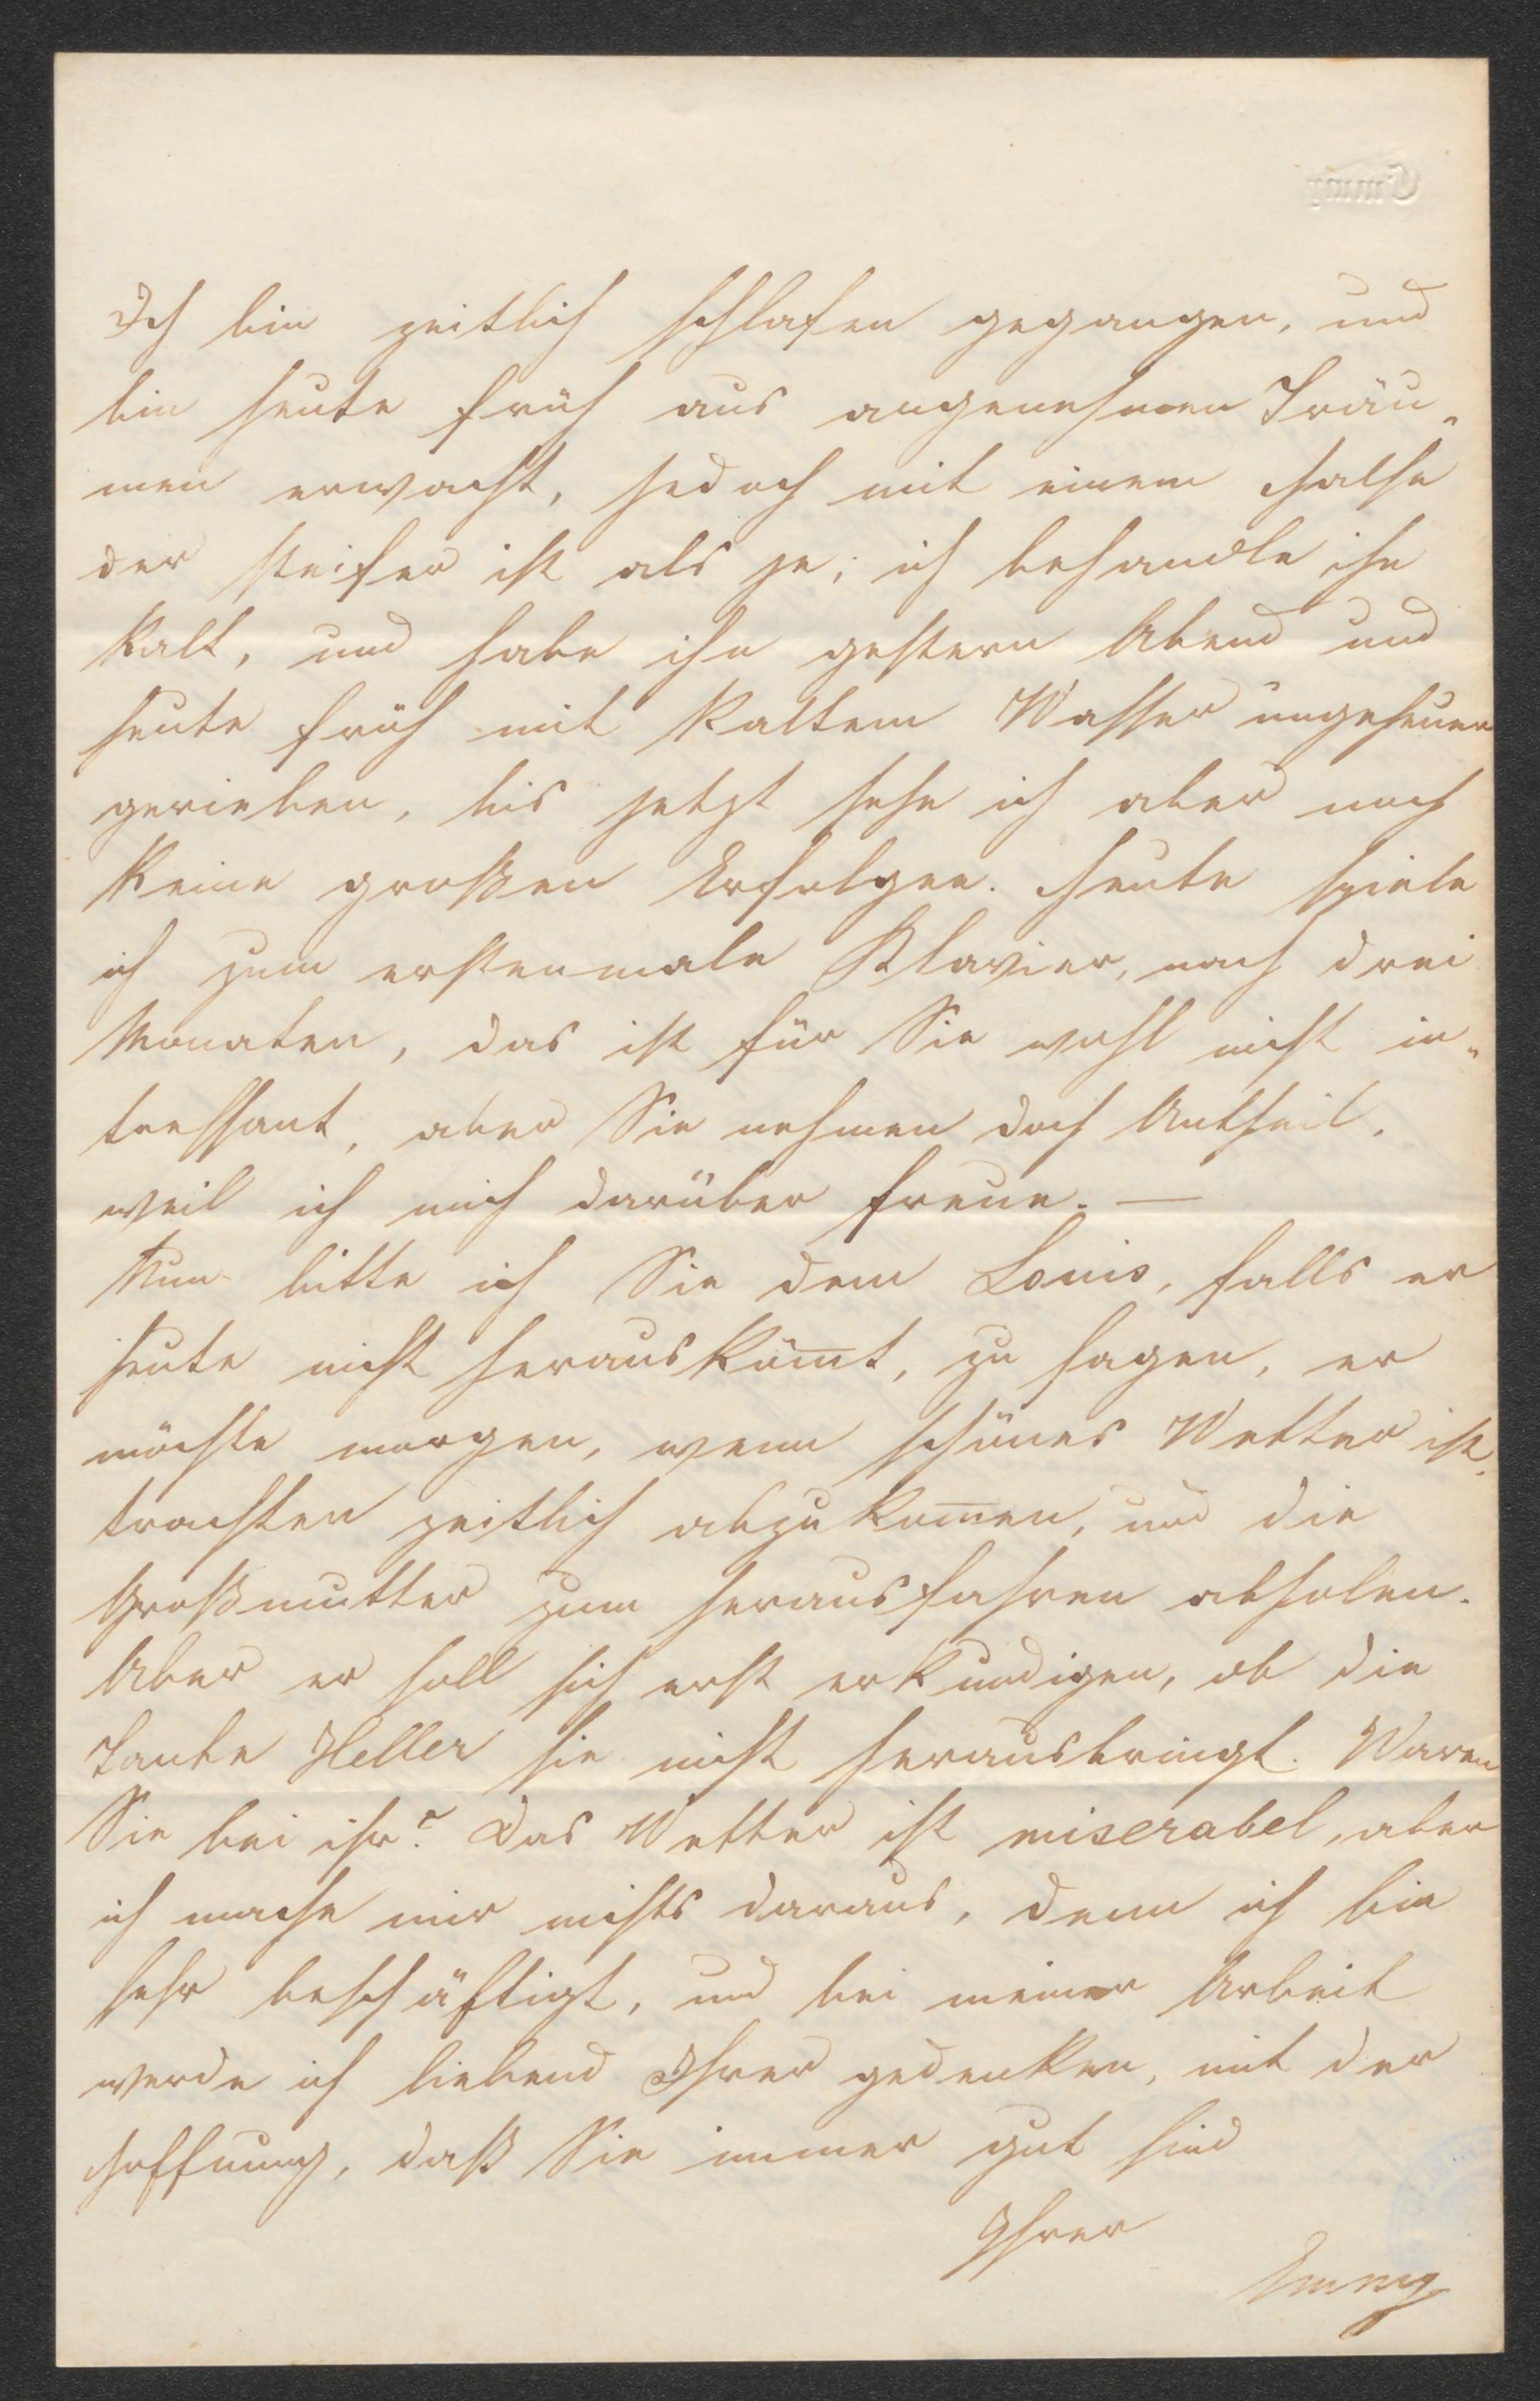 Emmy
Ich bin zeitlich schlafen gegangen, und
bin heute früh aus angenehmen Träu-
men erwacht, jedoch mit einem Halse
der steifer ist als je; ich behandle ihn
kalt, und habe ihn gestern Abend und
heute früh mit kaltem Wasser ungeheuer
gerieben, bis jetzt sehe ich aber noch
keine großen Erfolgen. Heute spiele
ich zum erstenmale Klavier, nach drei
Monaten, das ist für Sie wohl nicht in-
tressant, aber Sie nehmen doch Antheil,
weil ich mich darüber freue. —
Nun bitte ich Sie dem Louis, falls er
heute nicht herausköm̅t, zu sagen, er
möchte morgen, wenn schönes Wetter ist,
trachten zeitlich abzukom̅en, und die
Großmutter zum herausfahren abholen.
Aber er soll sich erst erkundigen, ob die
Tante Heller sie nicht herausbringt. Waren
Sie bei ihr? Das Wetter ist miserabel, aber
ich mache mir nichts daraus, denn ich bin
sehr beschäftigt, und bei meiner Arbeit
werde ich liebend Ihrer gedenken, mit der
Hoffnung, daß Sie immer gut sind
Ihrer
Emmy